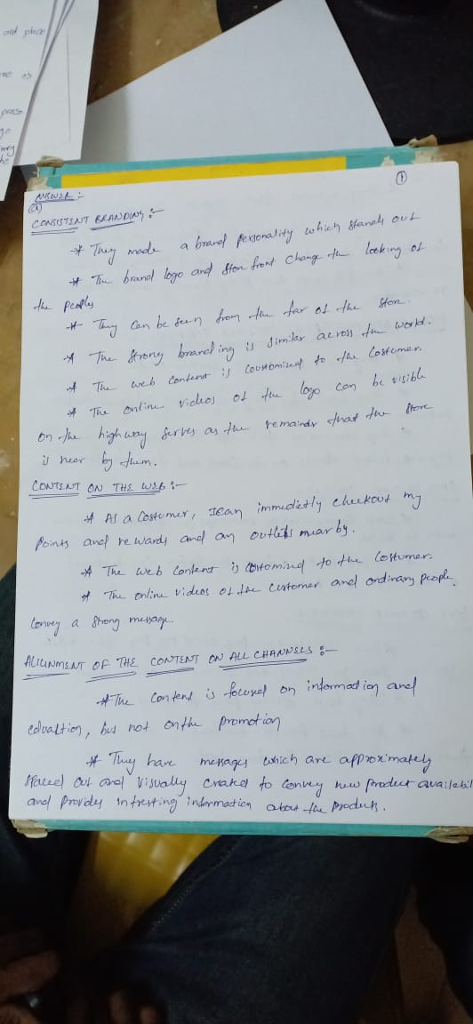 and place
①
ANSWER :-
(a)
CONSISTENT BRANDING :-
* They made a brand personality which stands out
* The brand logo and store front change the looking of
the peoples
* They can be seen from the far of the store.
* The strong branding is similar across the world.
* The web content is coustomised to the costumer.
* The online videos of the logo can be visible
on the highway serves as the remaindr that the store
is near by them.
CONTENT ON THE WEB :-
* As a costomer, I can immedietly checkout my
points and rewards and an outlets near by.
* The web content is costomized to the costumer.
* The online videos of the customer and ordinary people
convey a strong message
ALIGNMENT OF THE CONTENT ON ALL CHANNELS :-
* The content is focused on information and
eduaction, but not on the promotion
* They have messages which are approximately
placed out and visually created to convey new product availabil
and provides intresting information about the products.